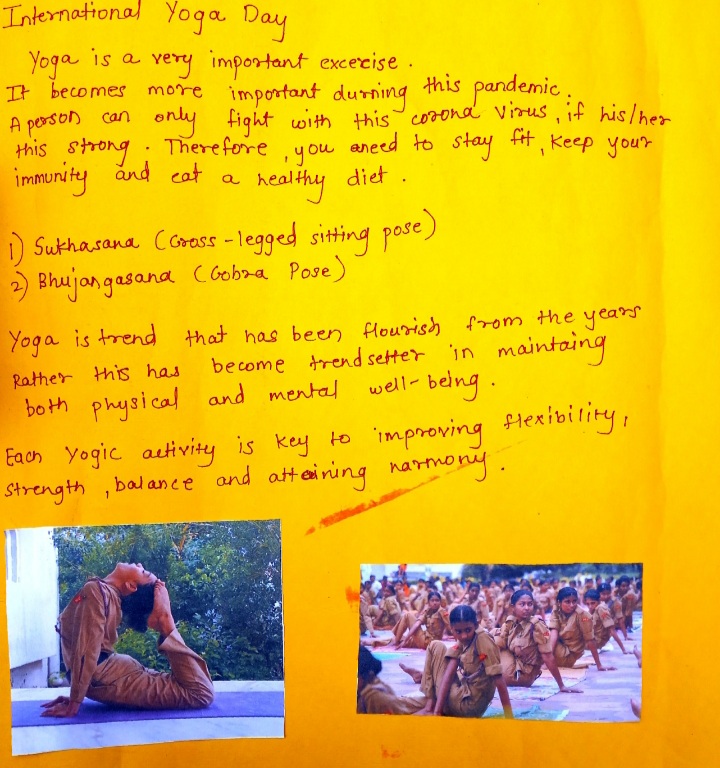 International Yoga Day
Yoga is a very important excercise.
It becomes more important durning this pandemic.
A person can only fight with this corona virus, if his/her
this strong. Therefore, you aneed to stay fit, keep your
immunity and eat a healthy diet.
1) Sukhasana (Cross-legged sitting pose)
2) Bhujangasana (Cobra Pose)
Yoga is trend that has been flourish from the years
Rather this has become trendsetter in maintaing
both physical and mental well-being.
Each Yogic activity is key to improving flexibility,
strength, balance and attaining harmony.